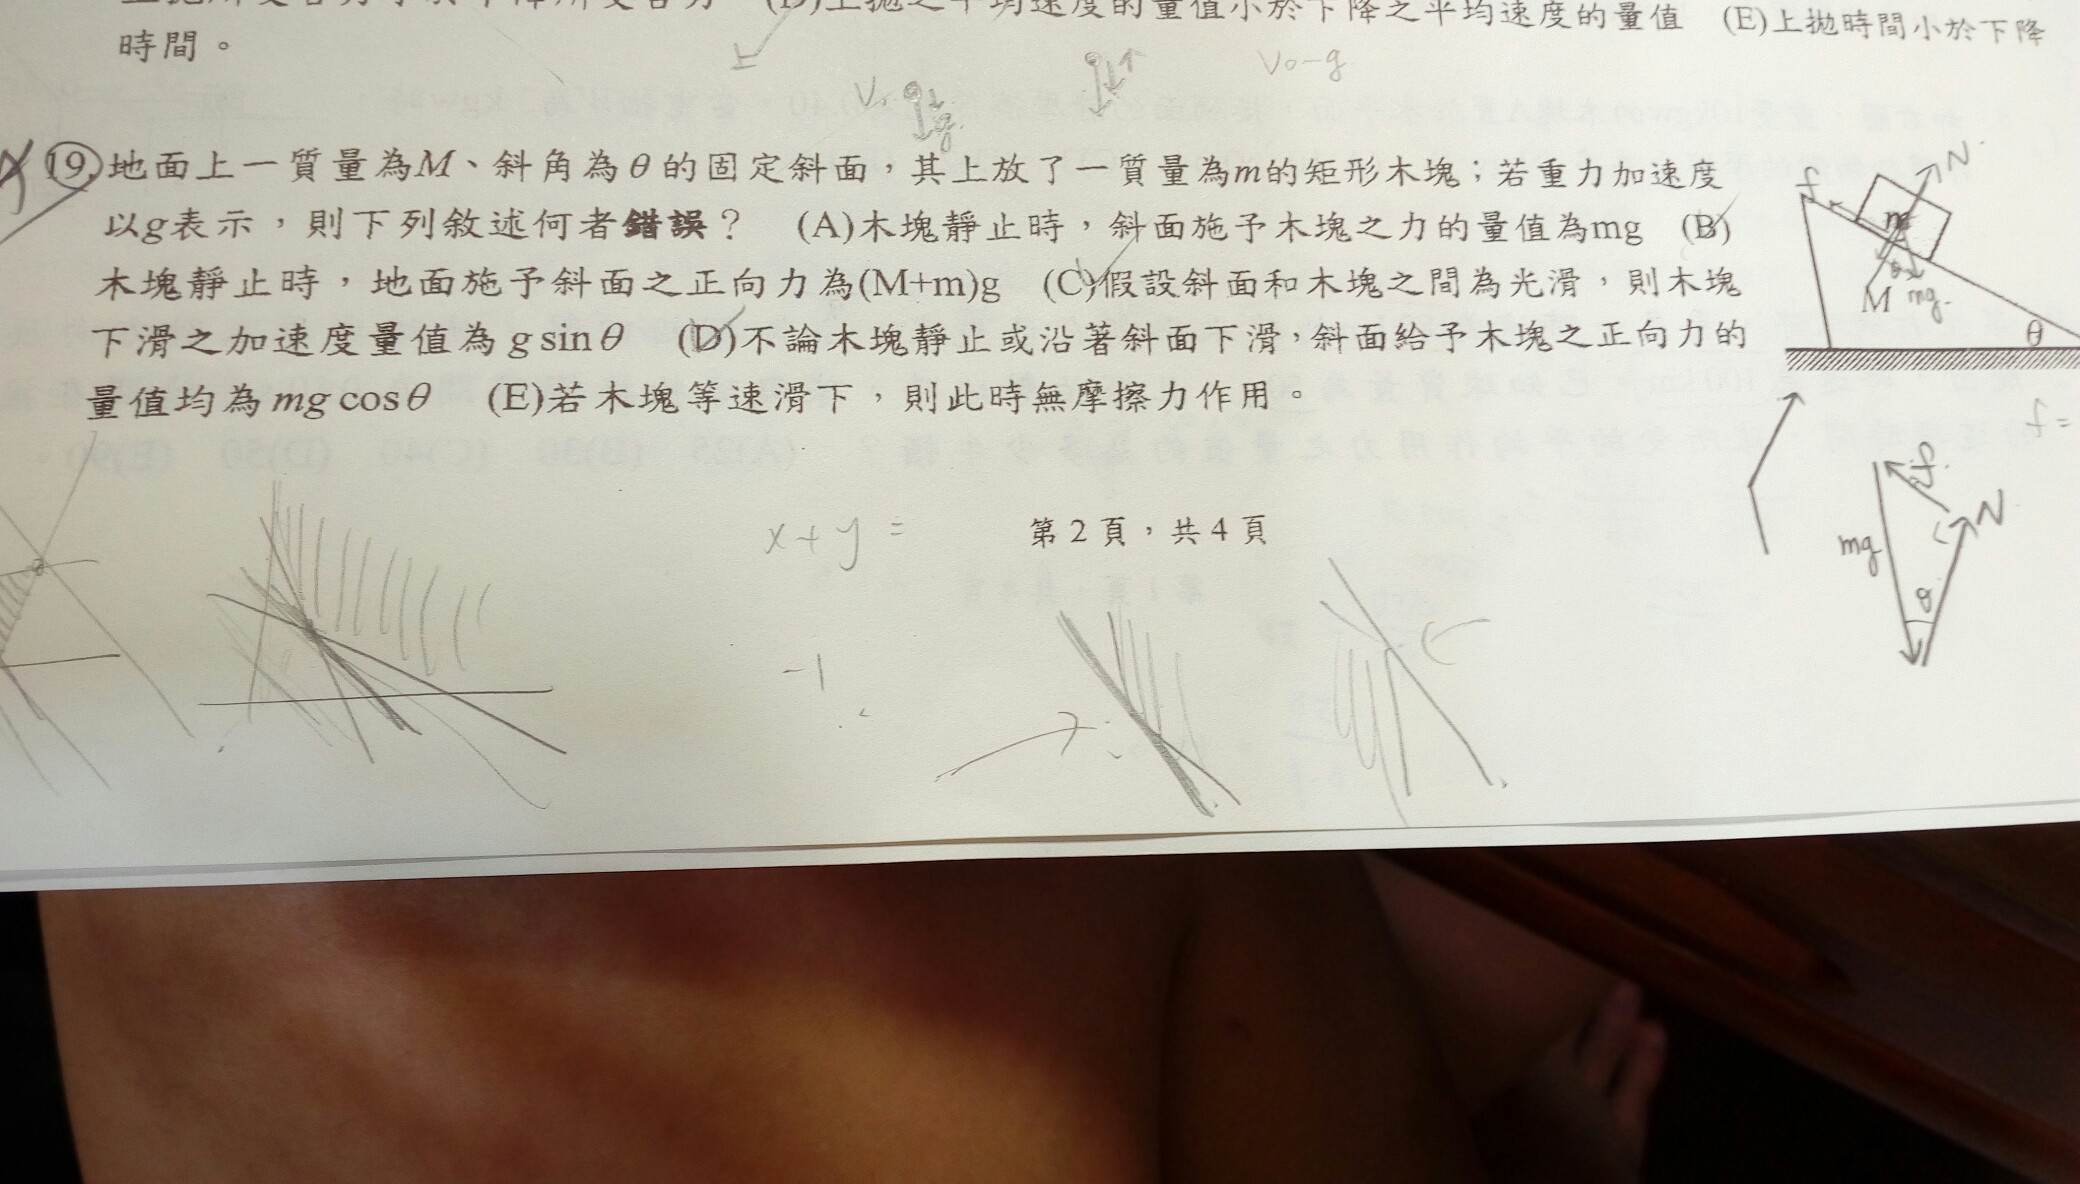 (D)上拋之平均速度的量值小於下降之平均速度的量值 (E)上拋時間小於下降
時間。
V₀-g
g
19.地面上一質量為M、斜角為θ的固定斜面,其上放了一質量為m的矩形木塊;若重力加速度
以g表示,則下列敘述何者錯誤? (A)木塊靜止時,斜面施予木塊之力的量值為mg (B)
木塊靜止時,地面施予斜面之正向力為(M+m)g (C)假設斜面和木塊之間為光滑,則木塊
下滑之加速度量值為g sinθ (D)不論木塊靜止或沿著斜面下滑,斜面給予木塊之正向力的
量值均為mg cosθ (E)若木塊等速滑下,則此時無摩擦力作用。
N
f
m
θ
M mg
θ
f=
f
N
mg
θ
x+y=
第2頁,共4頁
-1